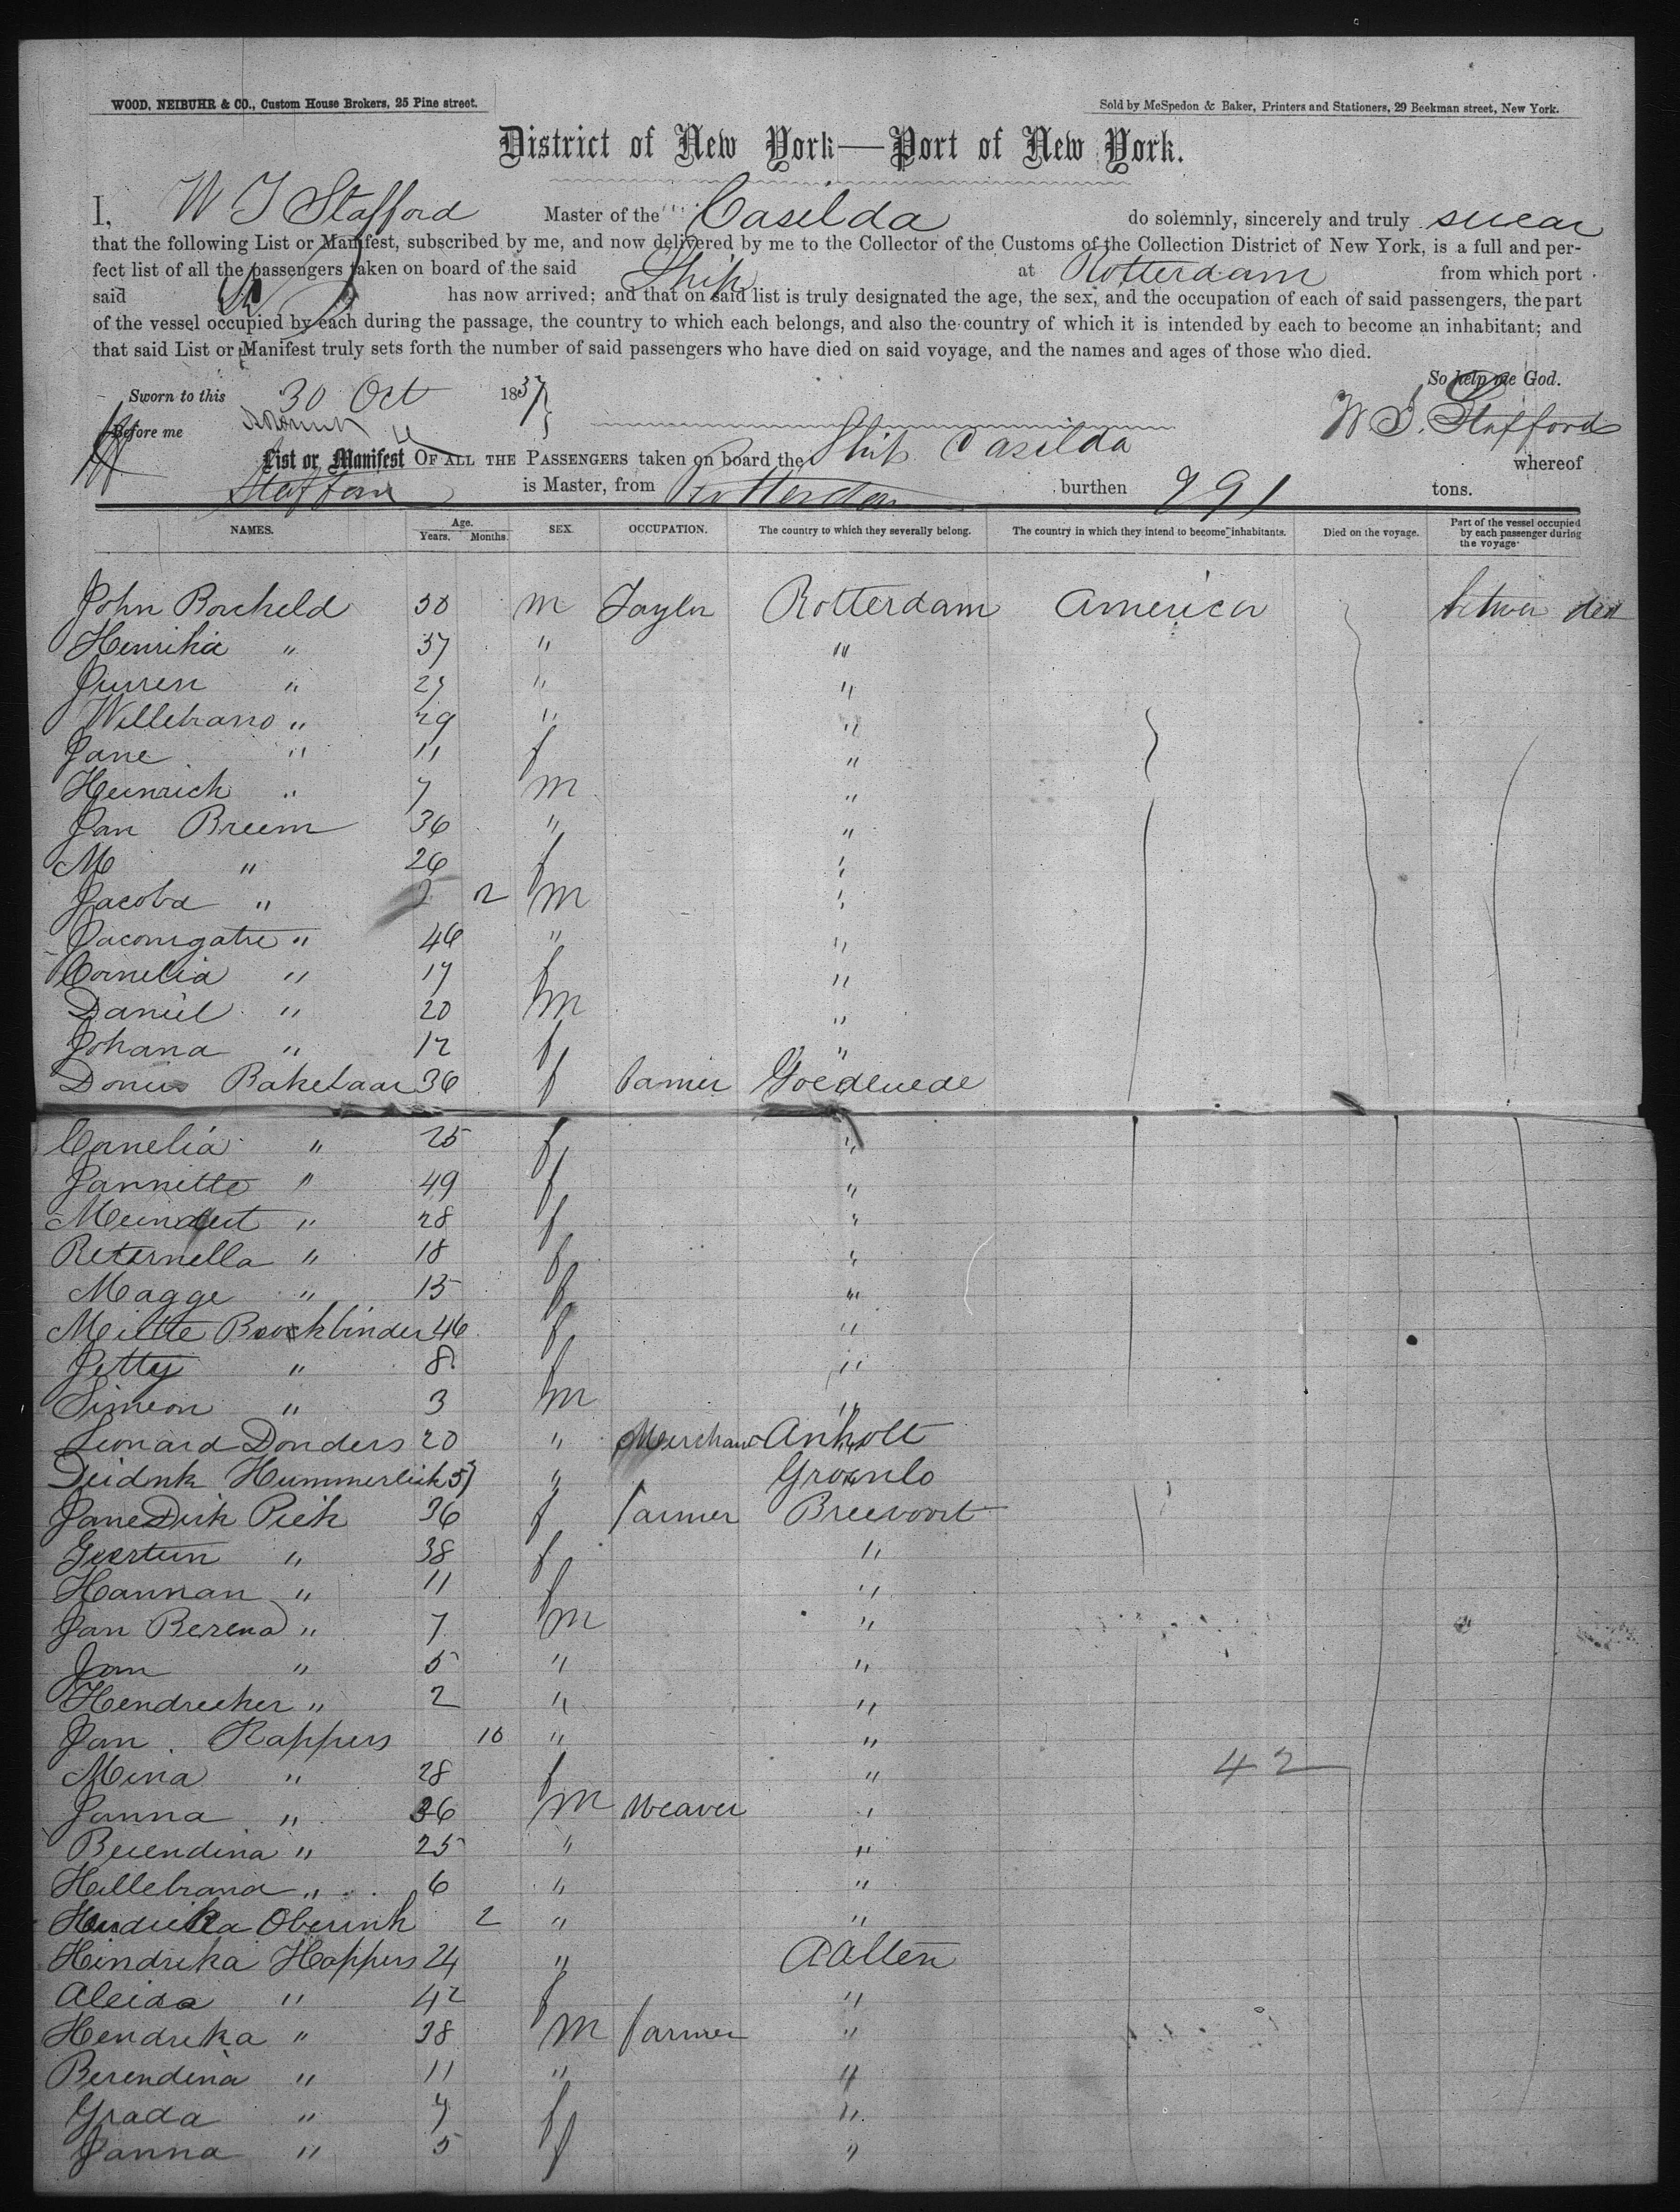 WOOD, NEIBUHR & CO., Custom House Brokers, 25 Pine street.
Sold by McSpedon & Baker, Printers and Stationers, 29 Beekman street, New York.
District of New York—Port of New York.
I, W J Stafford Master of the Casilda do solemnly, sincerely and truly swear
that the following List or Manifest, subscribed by me, and now delivered by me to the Collector of the Customs of the Collection District of New York, is a full and per-
fect list of all the passengers taken on board of the said Ship at Rotterdam from which port
said has now arrived; and that on said list is truly designated the age, the sex, and the occupation of each of said passengers, the part
of the vessel occupied by each during the passage, the country to which each belongs, and also the country of which it is intended by each to become an inhabitant; and
that said List or Manifest truly sets forth the number of said passengers who have died on said voyage, and the names and ages of those who died.
So help me God.
Sworn to this 30 Oct 185
Before me
W J. Stafford
List or Manifest OF ALL THE PASSENGERS taken on board the Ship Casilda whereof
Stafford is Master, from Rotterdam burthen 991 tons.
NAMES. Age. Years. Months. SEX. OCCUPATION. The country to which they severally belong. The country in which they intend to become inhabitants. Died on the voyage. Part of the vessel occupied by each passenger during the voyage
John Borcheld 38 m Taylor Rotterdam America
Henrika " 37 " "
Jurren " 27 " "
Willebrano " 29 " "
Jane " 11 f "
Heinrich " 7 m "
Jan Breem 36 " "
M " 26 f "
Jacoba " 2 m "
" 46 " "
Cornelia " 17 f "
Daniel " 20 m "
Johana " 12 f "
Donus Bakelaar 36 f Farmer Goedereede
Cornelia " 25 f "
Jannette " 49 f "
Meindert " 28 f "
Reternella " 18 f "
Magge " 15 f "
Meitte Boockbinder 46 f "
Jetty " 8 f "
Simeon " 3 m "
Leonard Donders 20 " Merchant Anholt
Deidnk Hummerlink " Groenlo
Jane Dirk Piek 36 f Farmer Breevoort
Geertun " 38 f "
Hannan " 11 f "
Jan Berend " 7 m "
Jan " 5 " "
Hendrecker " 2 " "
Jan Rappers 10 " "
Mina " 28 f " 42
Janna " 36 m Weaver "
Berendina " 25 " "
Hillebrand " 6 " "
Hendrika Oberink 2 " "
Hindrika Happers 24 " Aalten
Aleida " 42 f "
Hendrika " 38 m Farmer "
Berendina " 11 " "
Grada " 7 f "
Janna " 5 f "